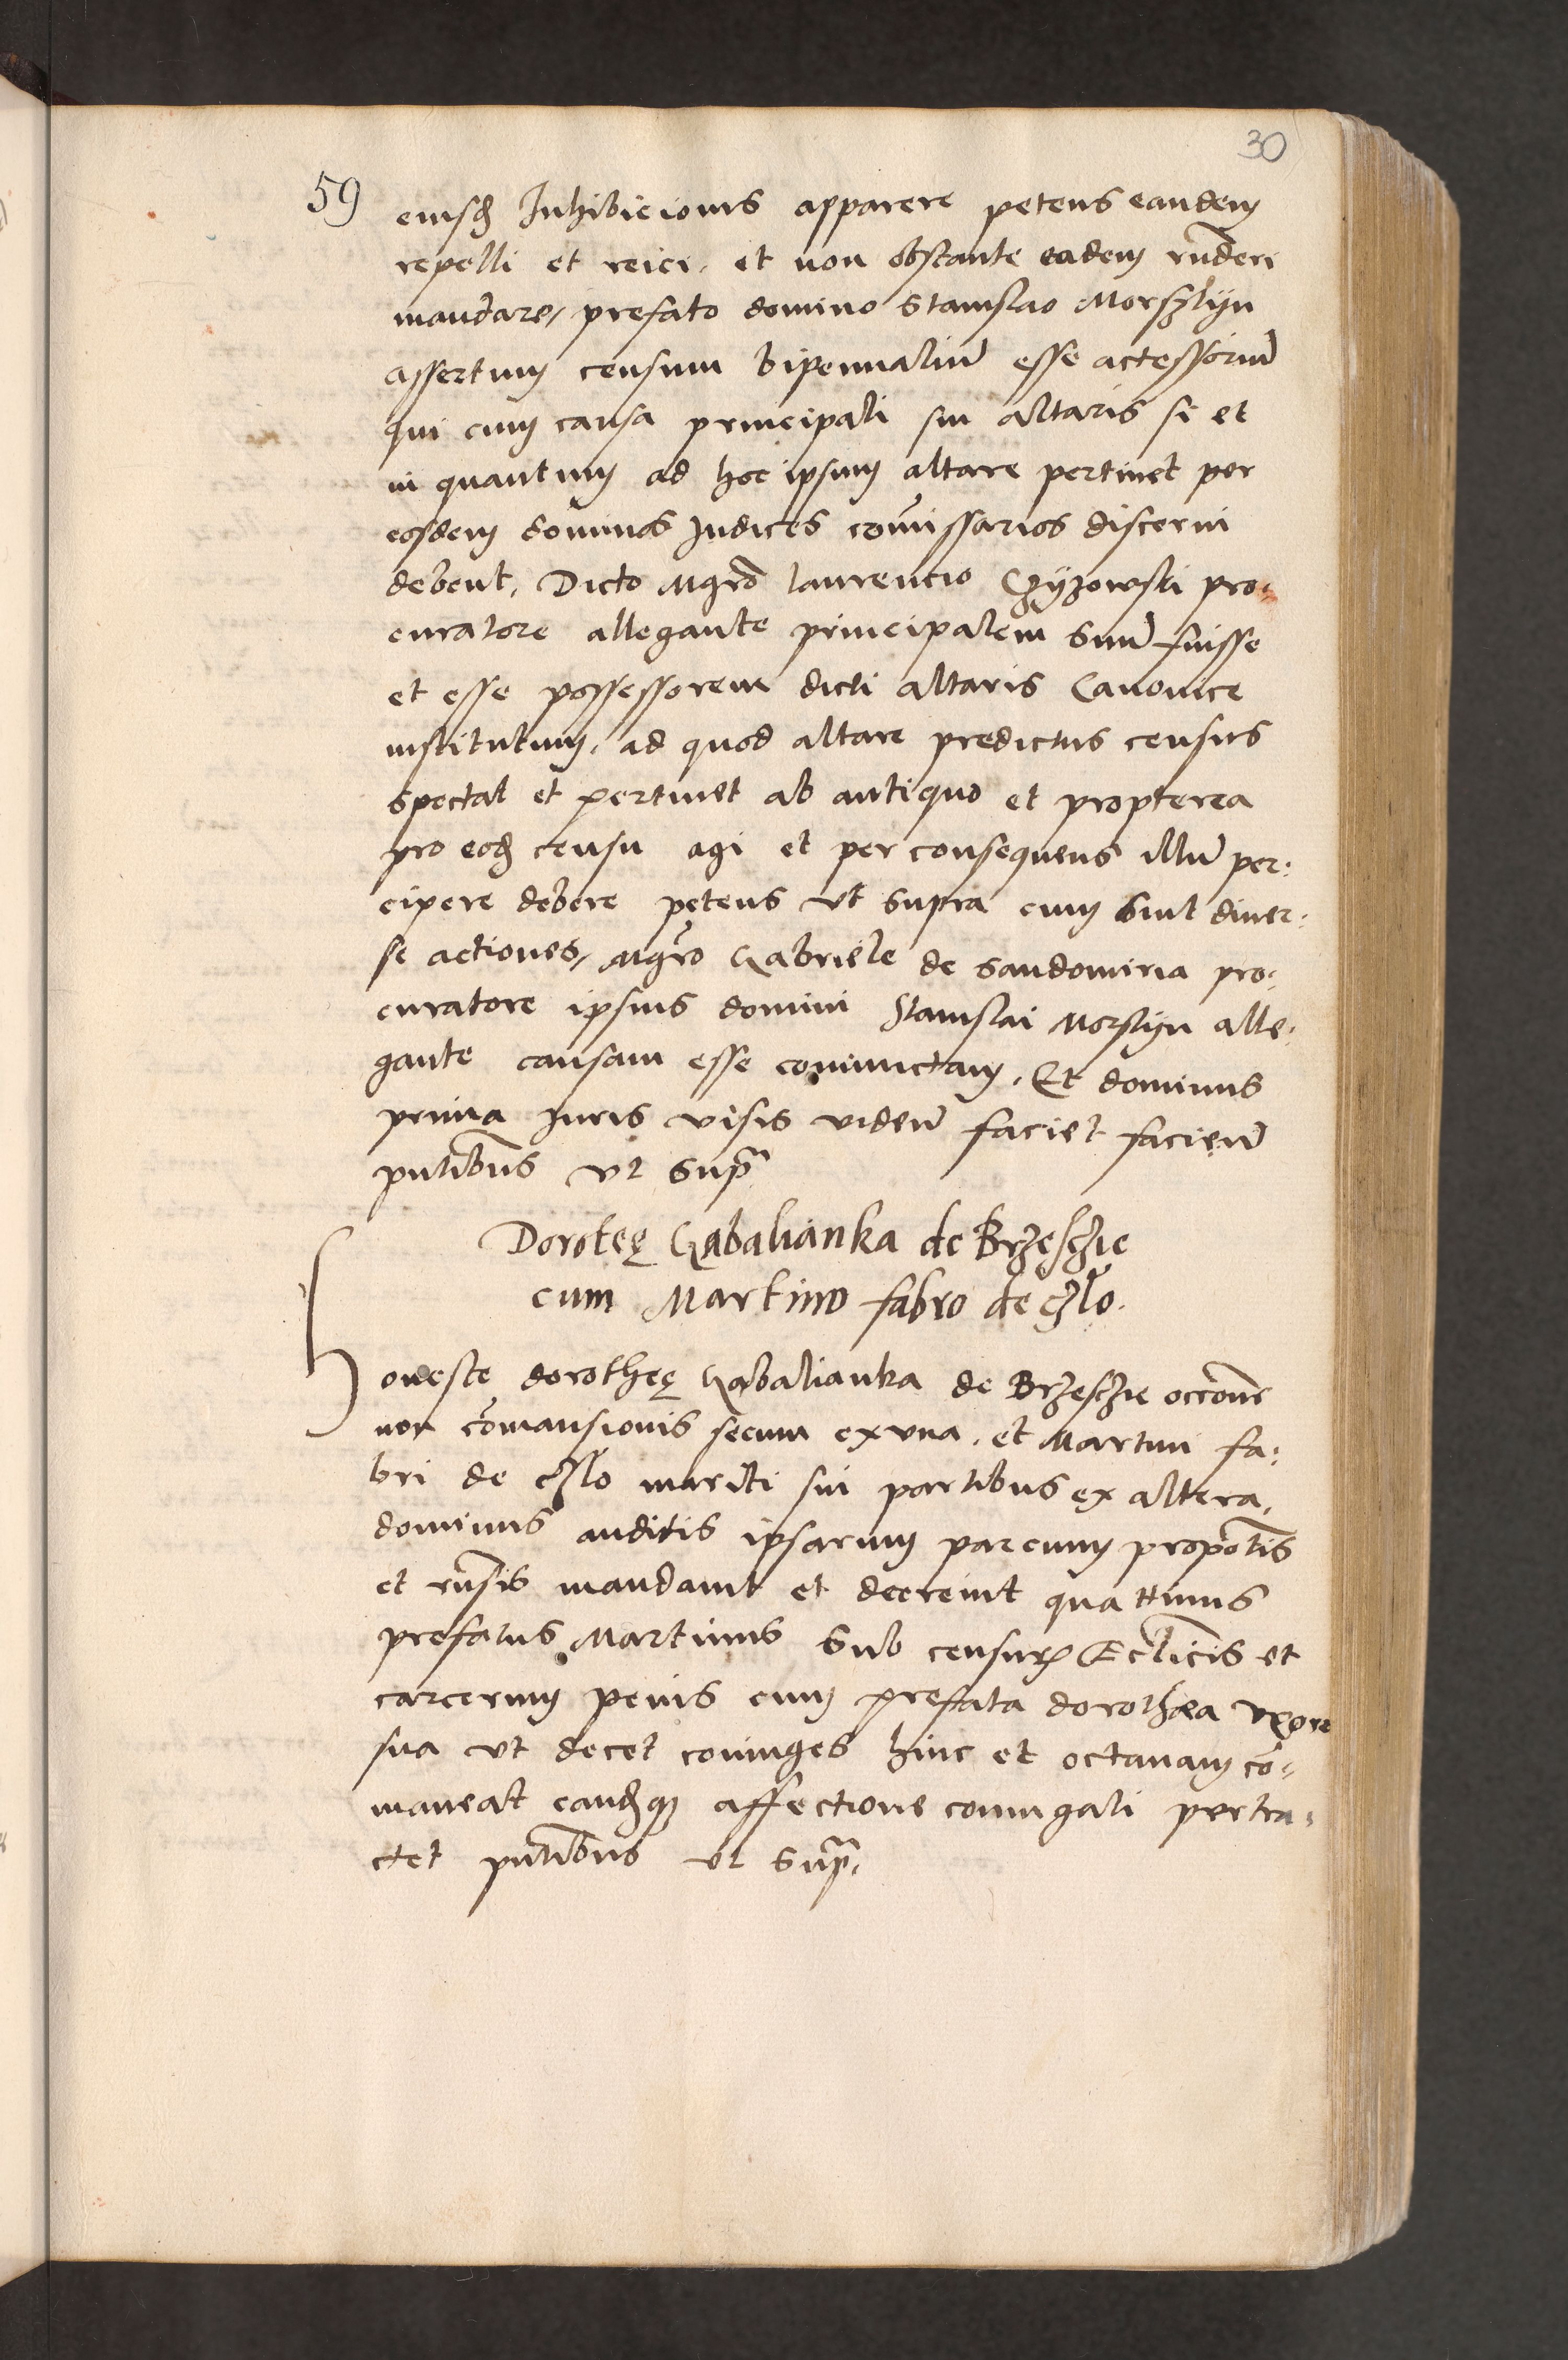 30
59
eiusd Inhibicionis apparere petens eandem
repelli et reici, et non obstante eadem rnderi
mandare, prefato domino Stanislao Morsztyn
assertum censum bipennaliu esse accessoriu
qui cum causa principali sui altaris si et
in quantum ad hoc ipsum altare pertinet per
eosdem dominos Judices comissarios discerni
debent, Dicto Mgro Laurencio Chyzowski pro-
curatore allegante principalem suu fuisse
et esse possessorem dicti altaris Canonice
institutum, ad quod altare predictus census
spectat et pertinet ab antiquo et propterea
pro eod censu agi et per consequens illu per:
cipere debere petens vt supra cum sint diver:
se actiones, Mgro Gabriele de Sandomiria pro:
curatore ipsius domini Stanislai Morstyn alle:
gante causam esse coniunctam, Et dominus
prima Juris visis viden faciet facien
pntibus vt supra
Doroteę Gabalianka de Brzeschie
cum Martino fabro de
Honeste dorotheę Gabalianka de Brzeschie occone
non comansionis secum ex vna, et Martini fa:
bri de mariti sui partibus ex altera,
dominus auditis ipsarum parcium propotis
et rnsis mandavit et decrevit quattinus
prefatus Martinus sub censuris Ecclicis et
carcerum penis cum prefata dorothea vxore
sua vt decet coniuges hinc et octavam co-
maneat eandque affectione coniugali pertra-
ctet pntibus vt supra